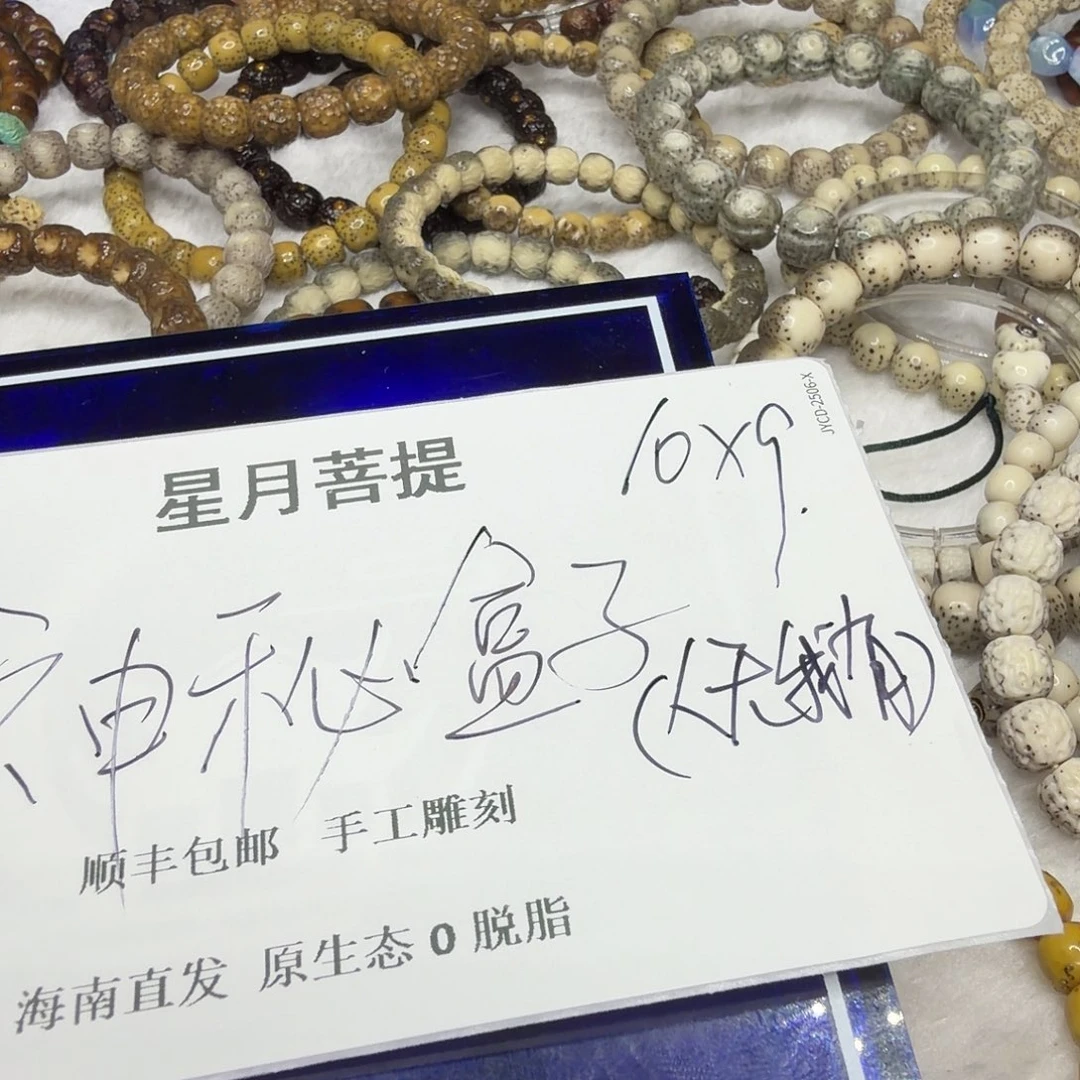 JYCD-2506-X
星月菩提
10×9.
神秘盒子
(人无我有)
顺丰包邮 手工雕刻
海南直发 原生态0脱脂